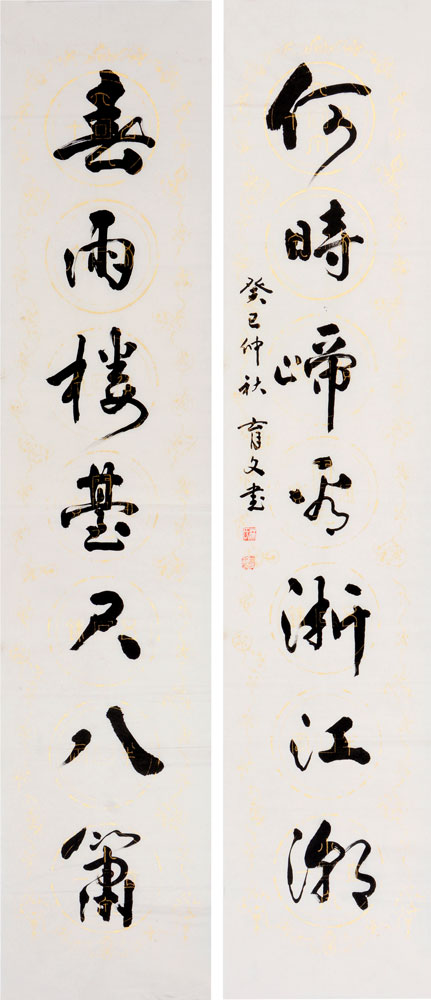 何時歸看浙江潮
癸巳仲秋 育文书
春雨楼臺尺八簫